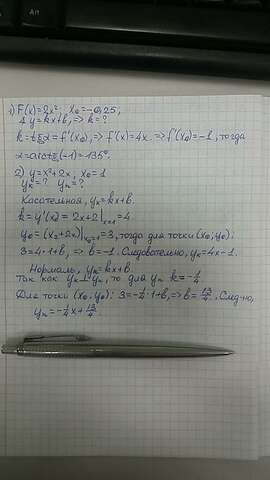 1) F(x)=2x², x₀=-0,25,
y=kx+b, => k=?
k=tgα=f'(x₀), => f'(x)=4x => f'(x₀)=-1, тогда
α=arctg(-1)=135°.
2) y=x²+2x, x₀=1
yк=? yн=?
Касательная, yк=kx+b.
k=y'(x₀)=2x+2|ₓ₌₁=4.
y₀=(x²+2x)|ₓ₀₌₁=3, тогда для точки (x₀, y₀):
3=4·1+b, => b=-1. Следовательно, yк=4x-1.
Нормаль, yн=kx+b.
Так как yк⊥yн, то для yн k=-1/4
Для точки (x₀, y₀): 3=-1/4·1+b, => b=13/4. След-но,
yн=-1/4x+13/4.